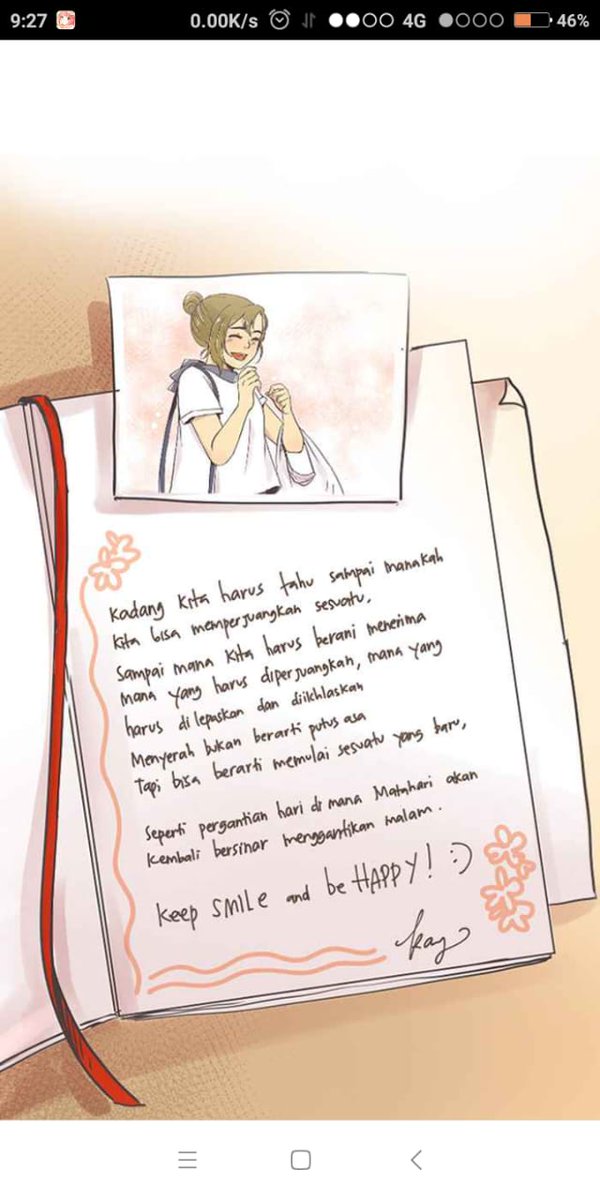 9:27 0.00K/s 4G 46%
Kadang kita harus tahu sampai manakah
kita bisa memperjuangkah sesuatu.
Sampai mana kita harus berani menerima
mana yang harus diperjuangkah, mana yang
harus di lepaskan dan diikhlaskah
Menyerah bukan berarti putus asa
Tapi bisa berarti memulai sesuatu yang baru,
Seperti pergantian hari di mana Matahari akan
kembali bersinar menggantikan malam.
keep SMILE and be HAPPY! :)
kay